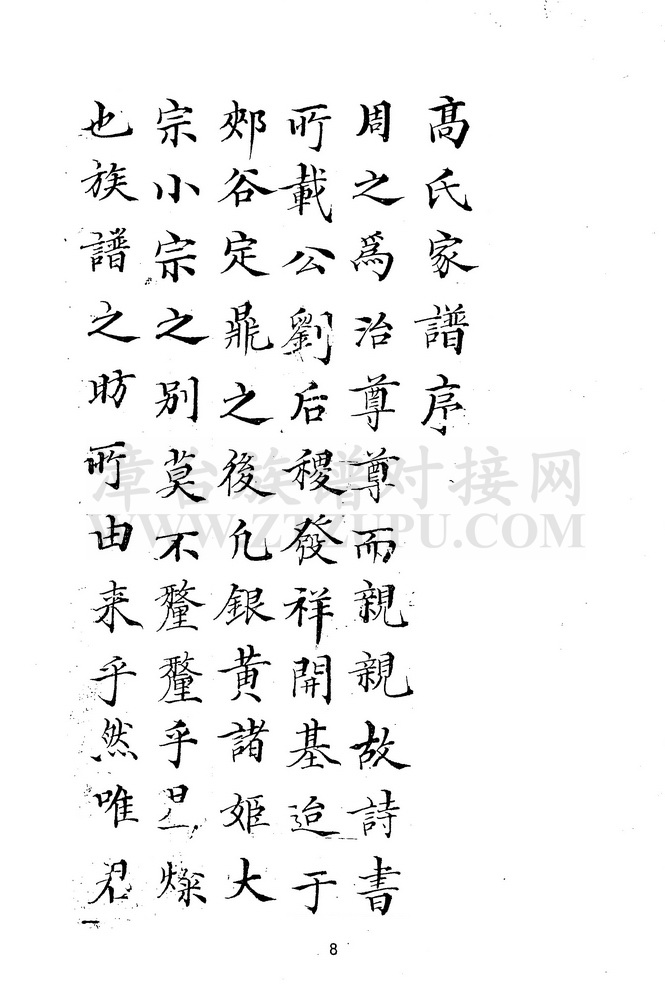 高氏家譜序
周之爲治尊尊而親親故詩書
所載公劉后稷發祥開基迨于
郟谷定鼎之後凢銀黄諸姬大
宗小宗之别莫不釐釐乎燦
也族譜之昉所由来乎然唯
漳台族谱对接网
WWW.ZTZUPU.COM
8